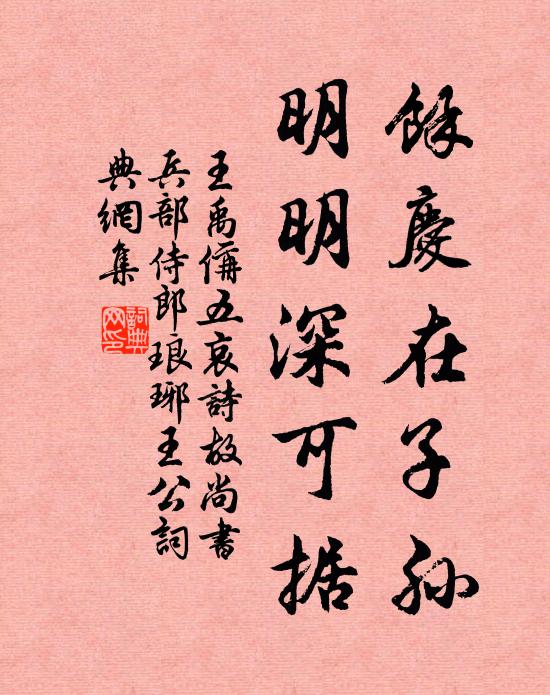 餘慶在子孫
明明深可据
王禹偁五哀詩故尚書
兵部侍郎琅琊王公詞
典網集
詞典
网印